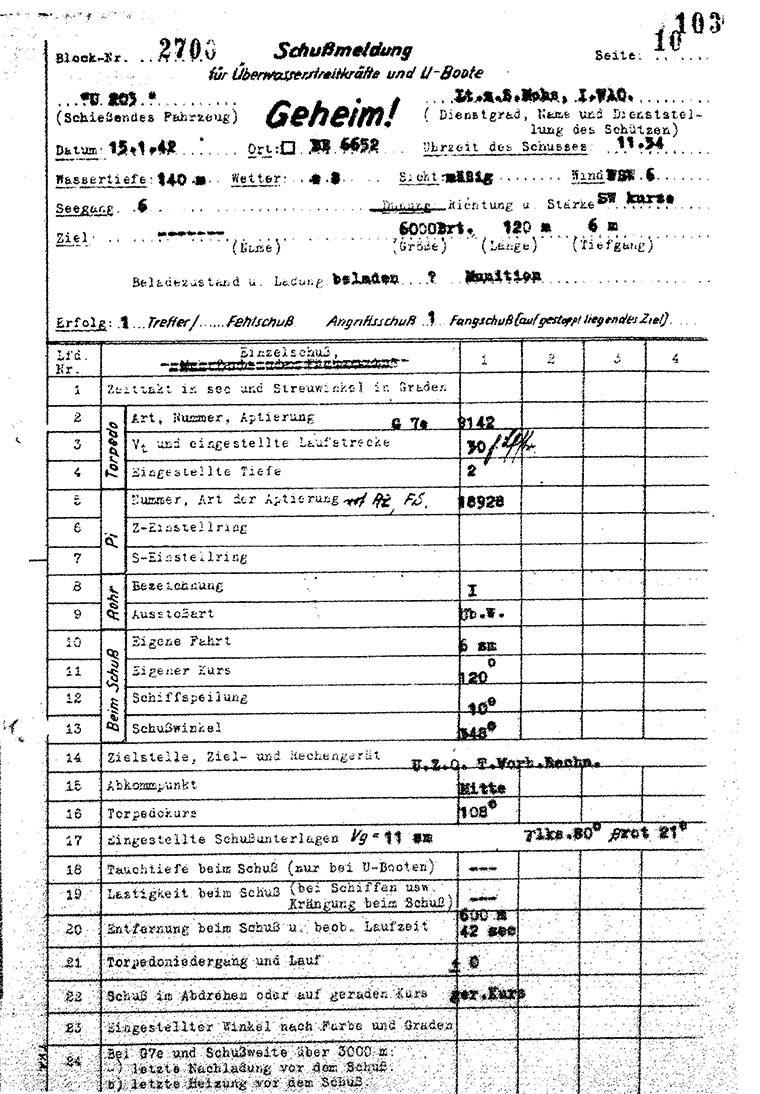 103
10
Block-Nr. 2700 Schußmeldung Seite:
für Überwasserstreitkräfte und U-Boote
"U 203" Geheim! Lt.z.S.Mohs, I.WAO.
(Schießendes Fahrzeug) (Dienstgrad, Name und Dienststel-
lung des Schützen)
Datum: 15.1.42 Ort: 6652 Uhrzeit des Schusses: 11.34
Wassertiefe: 140 m Wetter: Sicht: mäßig Wind WSW 6
Seegang 6 Dünung Richtung u. Stärke SW kurze
Ziel ------- 6000Brt. 120 m 6 m
(Name) (Größe) (Länge) (Tiefgang)
Beladezustand u. Ladung beladen ? Munition
Erfolg: 1 Treffer/ Fehlschuß Angriffsschuß 1 Fangschuß (auf gestoppt liegendes Ziel)
Lfd. Nr. Einzelschuß, 1 2 3 4
1 Zeittakt in sec und Streuwinkel in Graden
Torpedo
2 Art, Nummer, Aptierung G 7e 9142
3 Vt und eingestellte Laufstrecke 30
4 Eingestellte Tiefe 2
Pi
5 Nummer, Art der Aptierung FS. 18928
6 Z-Einstellring
7 S-Einstellring
Rohr
8 Bezeichnung I
9 Ausstoßart Üb.W.
Beim Schuß
10 Eigene Fahrt 6 sm
11 Eigener Kurs 120°
12 Schiffspeilung 10°
13 Schußwinkel 348°
14 Zielstelle, Ziel- und Rechengerät U.Z.O. T.Vorh.Rechn.
15 Abkommpunkt Mitte
16 Torpedokurs 108°
17 Eingestellte Schußunterlagen Vg = 11 sm 80° 21°
18 Tauchtiefe beim Schuß (nur bei U-Booten) ---
19 Lastigkeit beim Schuß (bei Schiffen usw.
Krängung beim Schuß) ---
20 Entfernung beim Schuß u. beob. Laufzeit 600 m
42 sec
21 Torpedoniedergang und Lauf ± 0
22 Schuß im Abdrehen oder auf geraden Kurs ger.Kurs
23 Eingestellter Winkel nach Farbe und Graden
24 Bei G7e und Schußweite über 3000 m:
a) letzte Nachladung vor dem Schuß.
b) letzte Heizung vor dem Schuß.